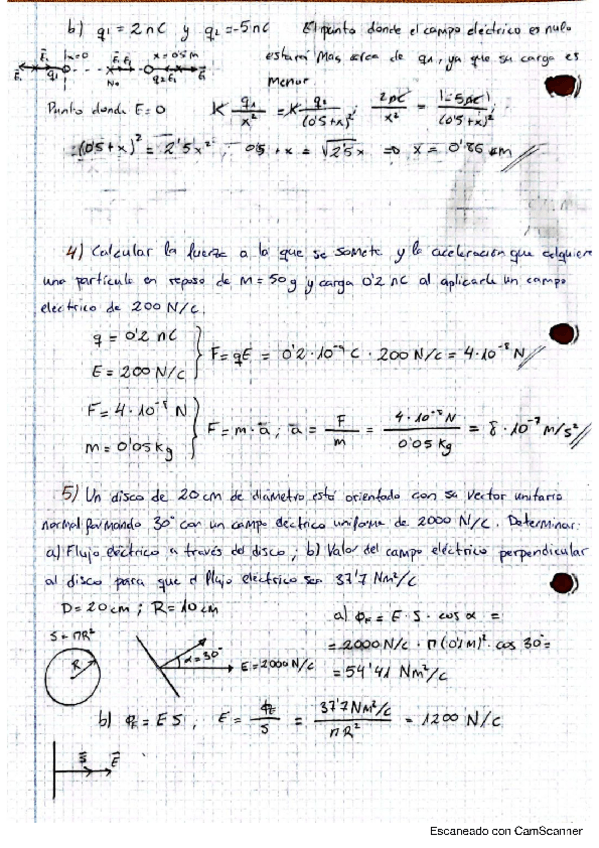 b) q₁ = 2 nC y q₂ = -5 nC El punto donde el campo eléctrico es nulo
estará más cerca de q₁, ya que su carga es
menor
x=0 x=0'5 m
E₁ q₁ E₁ q₂ E₁
Punto donde E=0 K q₁/x² = K q₂/(0'5+x)² ; 2nC/x² = |-5nC|/(0'5+x)² ;
(0'5+x)² = 2'5x² ; 0'5 + x = √2'5x ⇒ x = 0'86
4) Calcular la fuerza a la que se somete y la aceleración que adquiere
una partícula en reposo de M=50g y carga 0'2 nC al aplicarle un campo
eléctrico de 200 N/C.
q = 0'2 nC
E = 200 N/C
F = qE = 0'2·10⁻⁹ C · 200 N/C = 4·10⁻⁸ N
F = 4·10⁻⁸ N
m = 0'05 kg
F = m·a ; a = F/m = 4·10⁻⁸ N/0'05 kg = 8·10⁻⁷ m/s²
5) Un disco de 20 cm de diámetro está orientado con su vector unitario
normal formando 30° con un campo eléctrico uniforme de 2000 N/C. Determinar:
a) Flujo eléctrico a través del disco ; b) Valor del campo eléctrico perpendicular
al disco para que el flujo eléctrico sea 37'7 Nm²/C
D = 20 cm ; R = 10 cm
S = πR²
R
α = 30°
E = 2000 N/C
a) ϕₑ = E · S · cos α =
= 2000 N/C · π (0'1M)² · cos 30° =
= 54'41 Nm²/C
b) ϕₑ = E S ; E = ϕₑ/S = 37'7 Nm²/C/πR² = 1200 N/C
S E
Escaneado con CamScanner